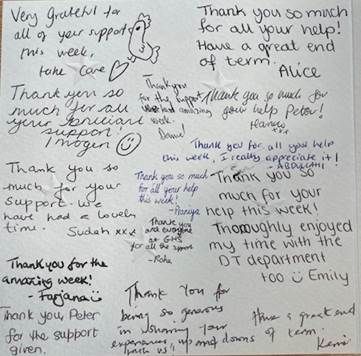 Very grateful for
all of your support
this week,
take care
Thank you so much
for all your help!
Have a great end
of term.
Alice
Thank you so
much for all
your brilliant
support!
Imogen
Thank you
for the support
we had amazing
week.
Thank you so much for
your help Peter!
Thank you for all you help
this week, I really appreciate it!
Thank you so
much for your
support. We
have had a lovely
time.
Sudeh xxx
Thank you so much
for all your help
this week!
Thank you
and everyone
at GHS
for all the support
Thank you so
much for your
help this week!
Thoroughly enjoyed
my time with the
DT department
too Emily
Thank you for the
amazing week!
- Farjana
Thank you Peter
for the support
given.
Thank You for
being so generous
in sharing your
experiences, ups and downs
with us
Have a great end
of term.